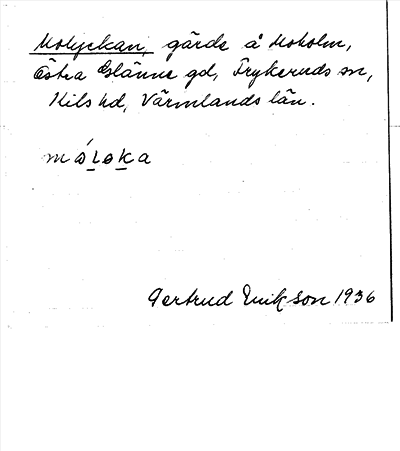 Molyckan, gärde å Moholm,
Östra Glänne gd, Frykeruds sn,
Kils hd, Värmlands län.
mól̠ɵk̠a
Gertrud Erikson 1936